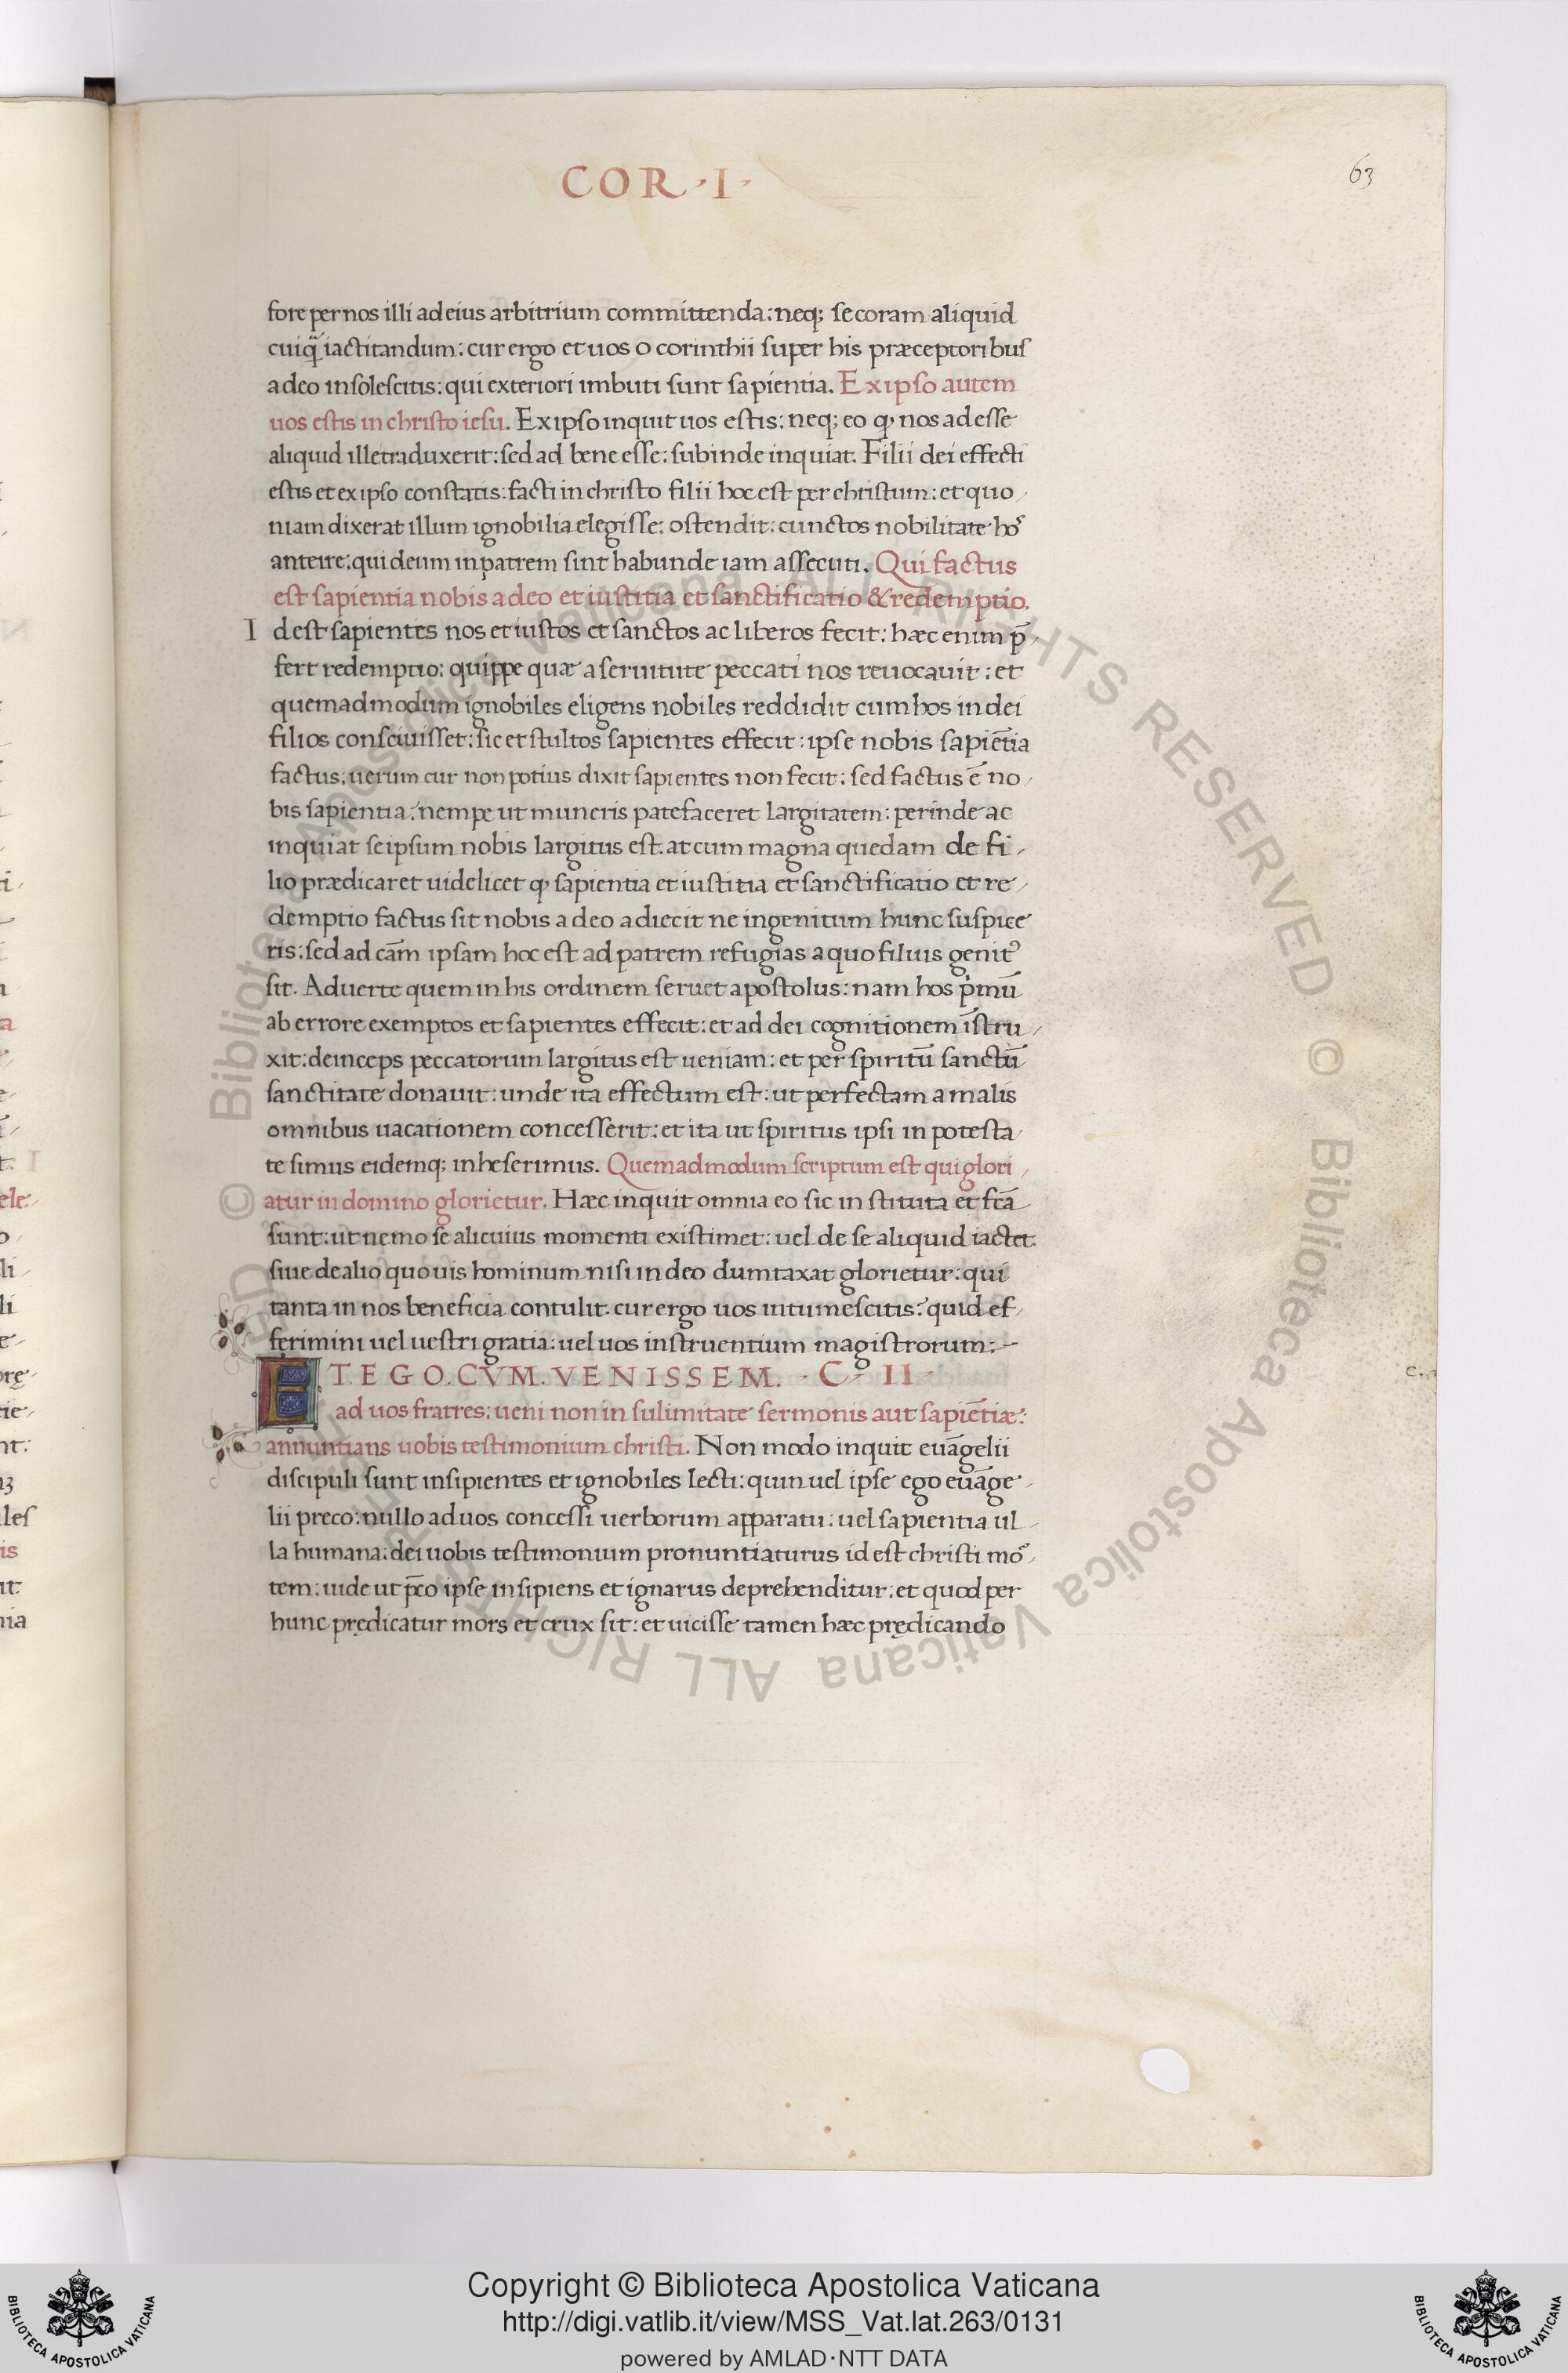 COR · I ·
63
fore per nos illi ad eius arbitrium committenda: neq; se coram aliquid
cuiq̃ iactitandum: cur ergo et uos o corinthii super his præceptoribus
adeo insolescitis: qui exteriori imbuti sunt sapientia. Ex ipso autem
uos estis in christo iesu. Ex ipso inquit uos estis: neq; eo ꝙ nos ad esse
aliquid ille traduxerit: sed ad bene esse: subinde inquiat. Filii dei effecti
estis et ex ipso constatis: facti in christo filii hoc est per christum: et quo
niam dixerat illum ignobilia elegisse: ostendit: cunctos nobilitate hos
anteire: qui deum in patrem sint habunde iam assecuti. Qui factus
est sapientia nobis a deo et iustitia et sanctificatio & redemptio.
I dest sapientes nos et iustos et sanctos ac liberos fecit: hæc enim p̃
fert redemptio: quippe quæ a seruitute peccati nos reuocauit: et
quemadmodum ignobiles eligens nobiles reddidit cum hos in dei
filios consciuisset: sic et stultos sapientes effecit: ipse nobis sapiẽtia
factus: uerum cur non potius dixit sapientes non fecit: sed factus ẽ no
bis sapientia: nempe ut muneris patefaceret largitatem: perinde ac
inquiat seipsum nobis largitus est. at cum magna quedam de fi
lio prædicaret uidelicet ꝙ sapientia et iustitia et sanctificatio et re
demptio factus sit nobis a deo adiecit ne ingenitum hunc suspice
ris: sed ad cãm ipsam hoc est ad patrem refugias a quo filius genitꝰ
sit. Aduerte quem in his ordinem seruet apostolus: nam hos p̃mũ
ab errore exemptos et sapientes effecit: et ad dei cognitionem ĩstru
xit: deinceps peccatorum largitus est ueniam: et per spiritũ sanctũ
sanctitate donauit: unde ita effectum est: ut perfectam a malis
omnibus uacationem concesserit: et ita ut spiritus ipsi in potesta
te simus eidemq; inheserimus. Quemadmodum scriptum est qui glori
atur in domino glorietur. Hæc inquit omnia eo sic instituta et fc̃a
sunt: ut nemo se alicuius momenti existimet: uel de se aliquid iactet
siue de alio quouis hominum nisi in deo dumtaxat glorietur: qui
tanta in nos beneficia contulit. cur ergo uos intumescitis: quid ef
ferimini uel uestri gratia: uel uos instruentium magistrorum:
ET EGO. CVM. VENISSEM. · C · II ·
ad uos fratres: ueni non in sulimitate sermonis aut sapiẽtiæ:
annuntians uobis testimonium christi. Non modo inquit euãgelii
discipuli sunt insipientes et ignobiles lecti: quin uel ipse ego euãge
lii preco: nullo ad uos concessi uerborum apparatu: uel sapientia ul
la humana: dei uobis testimonium pronuntiaturus id est christi mor
tem: uide ut p̃co ipse insipiens et ignarus deprehenditur: et quod per
hunc prędicatur mors et crux sit: et uicisse tamen hæc prędicando
Copyright © Biblioteca Apostolica Vaticana
http://digi.vatlib.it/view/MSS_Vat.lat.263/0131
powered by AMLAD·NTT DATA